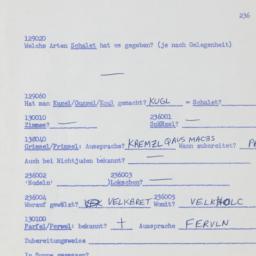 236
129020
Welche Arten Schalet hat es gegeben? (je nach Gelegenheit)
—
129060
Hat man Kugel/Guggel/Koul gemacht? KUGL = Schalet?
130010 236001
Zimmes? — Schüssel? —
132040
Grimsel/Frimsel: Aussprache? KREMZL QAUS MACBS Wann zubereitet?
Auch bei Nichtjuden bekannt? —
236002 236003
'Nudeln' Lokschen? —
236004 236005
Worauf gewälzt? VELKBRET Womit? VELKHOLC
130100
Farfel/Ferwel: bekannt? + Aussprache FERVLN
Zubereitungsweise